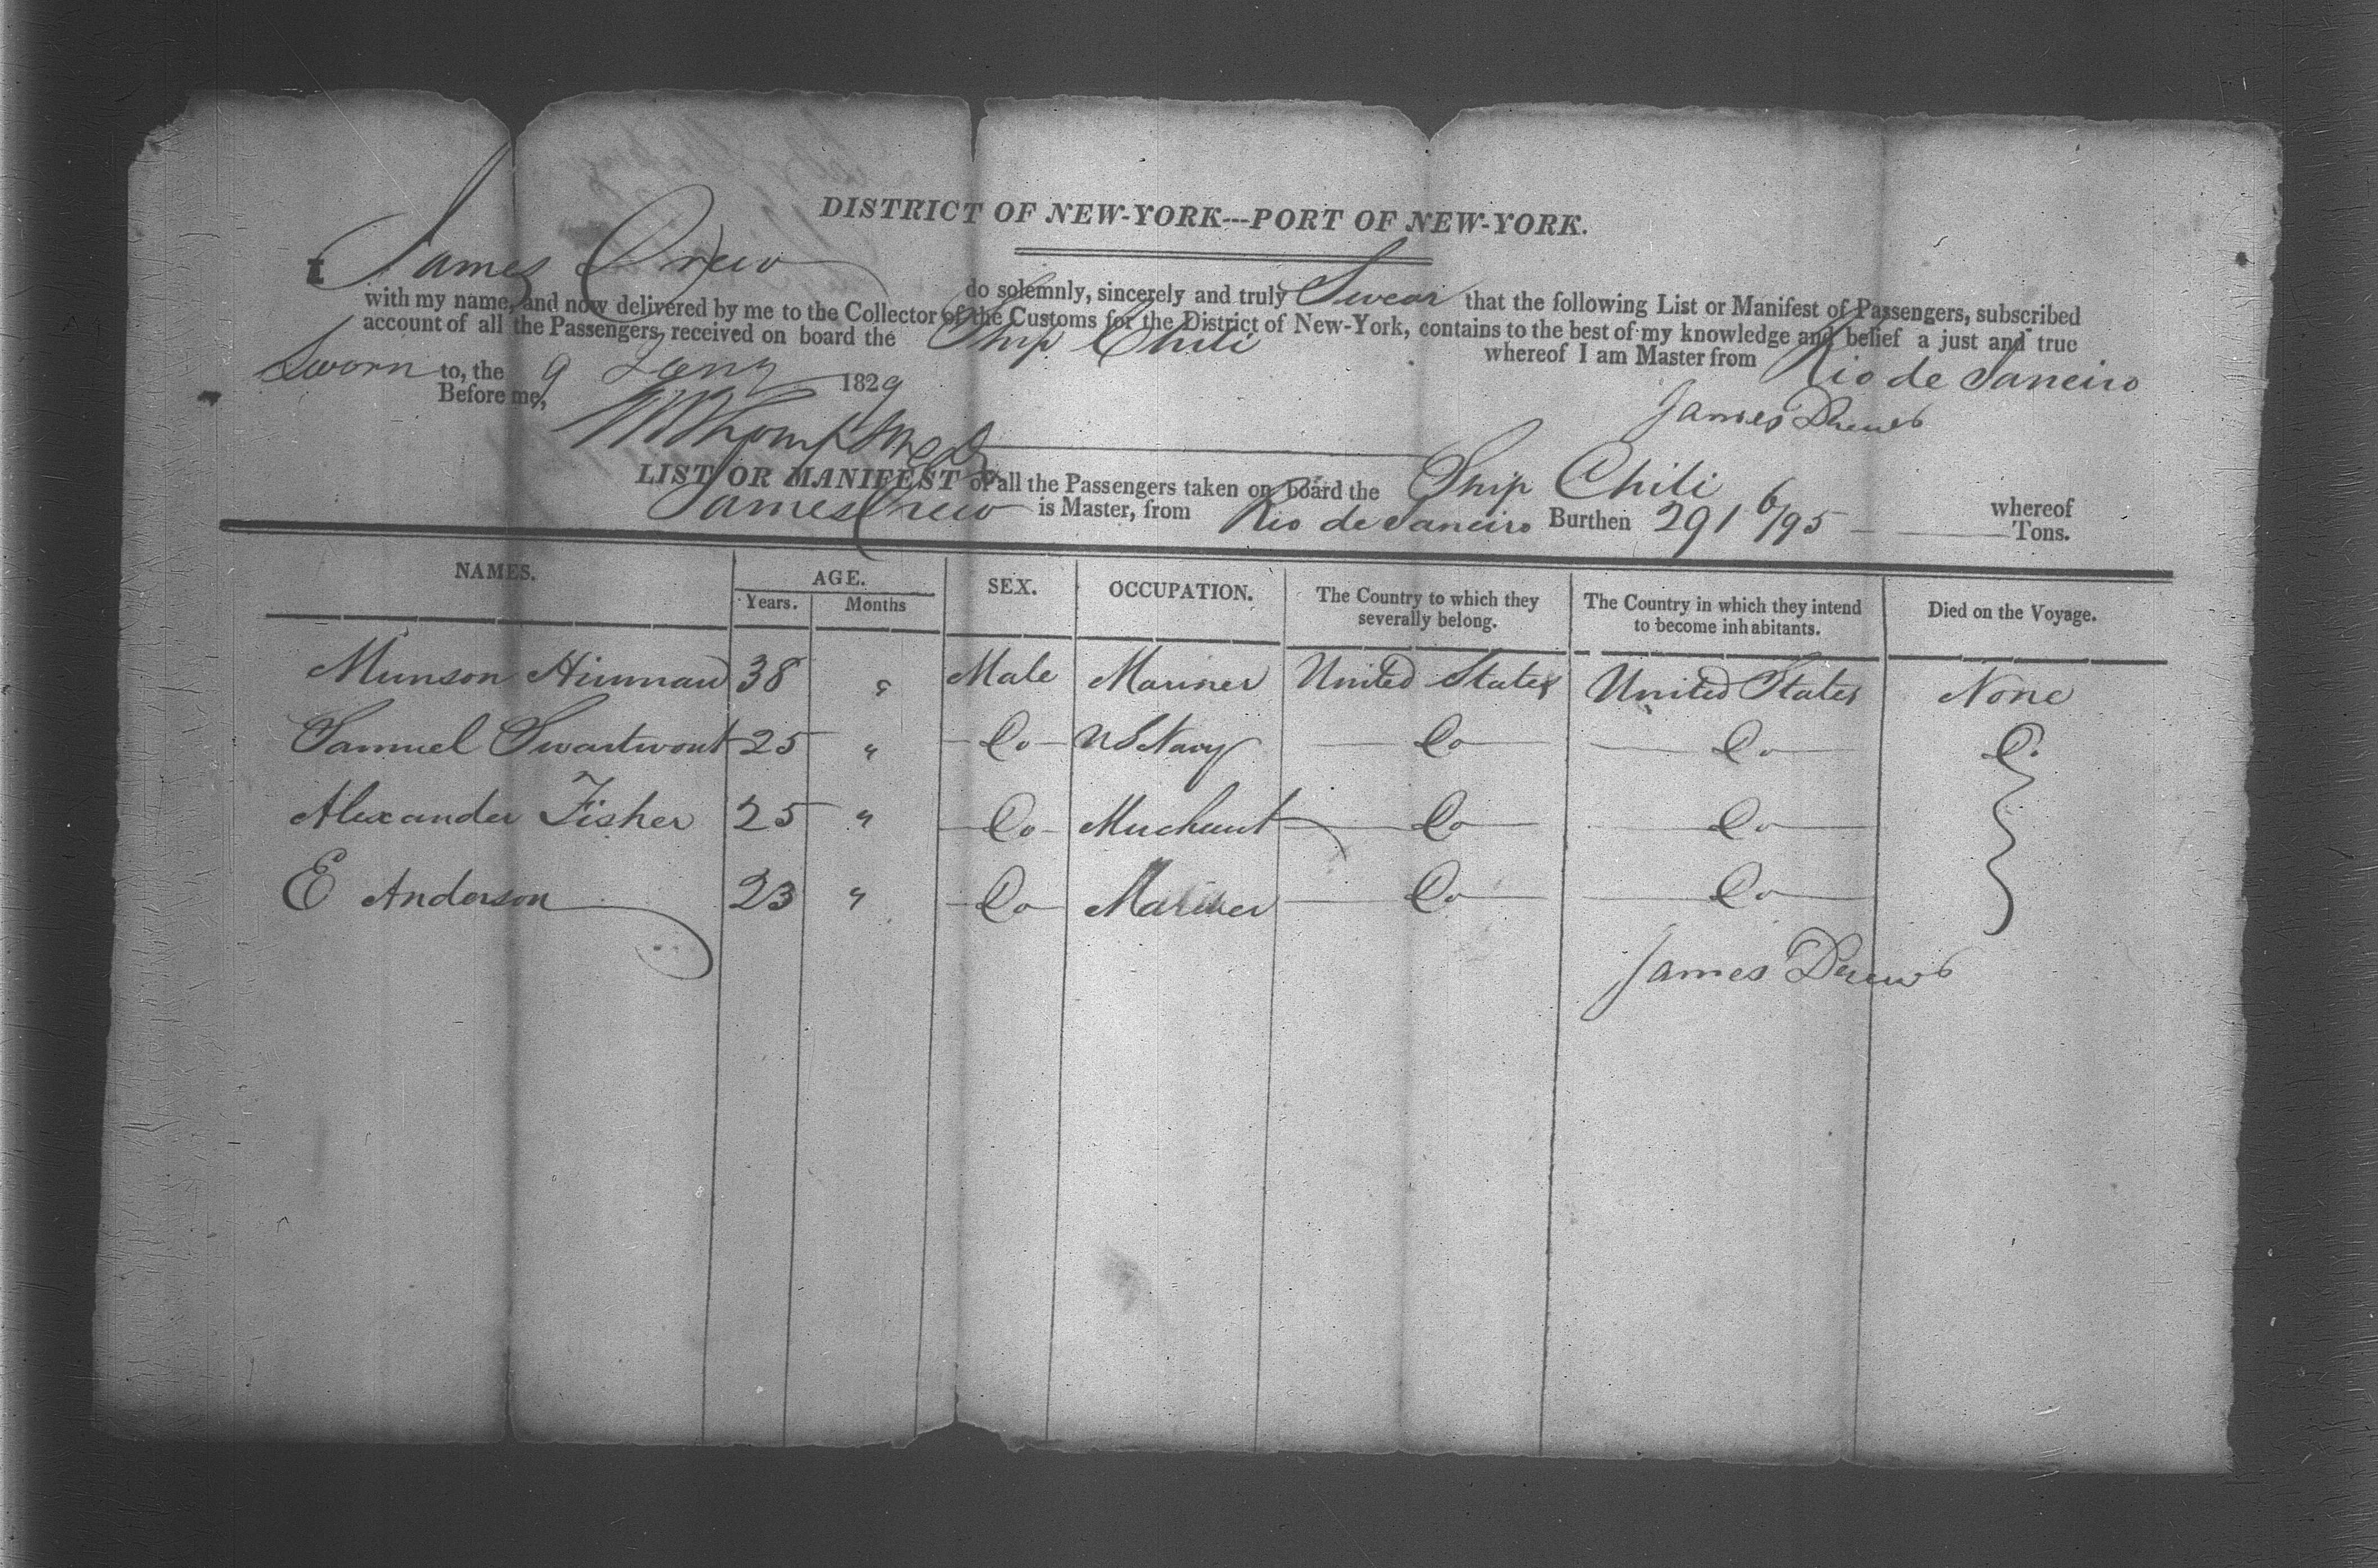 DISTRICT OF NEW-YORK---PORT OF NEW-YORK.
I James Drew do solemnly, sincerely and truly Swear that the following List or Manifest of Passengers, subscribed
with my name, and now delivered by me to the Collector of the Customs for the District of New-York, contains to the best of my knowledge and belief a just and true
account of all the Passengers received on board the Ship Chili whereof I am Master from Rio de Janeiro
Sworn to, the 9 Jany 1829
Before me, James Drew
LIST OR MANIFEST of all the Passengers taken on board the Ship Chili whereof
James Drew is Master, from Rio de Janeiro Burthen 291 6/95 Tons.
NAMES. AGE. SEX. OCCUPATION. The Country to which they severally belong. The Country in which they intend to become inhabitants. Died on the Voyage.
Years. Months
Munson Hinman 38 " Male Mariner United States United States None
Samuel Swartwout 25 " Do U S Navy Do Do Do
Alexander Fisher 25 " Do Merchant Do Do
E Anderson 23 " Do Mariner Do Do
James Drew